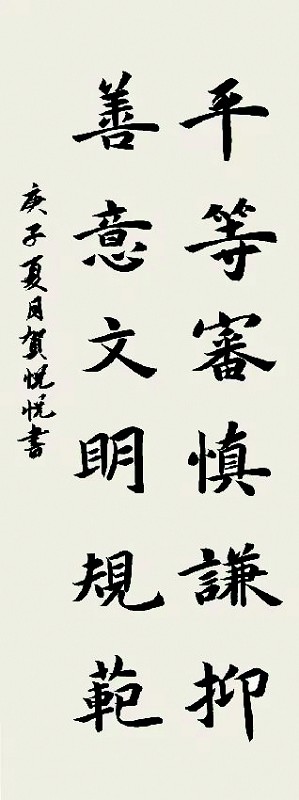 平等審慎謙抑
善意文明規範
庚子夏月賀悅悅書